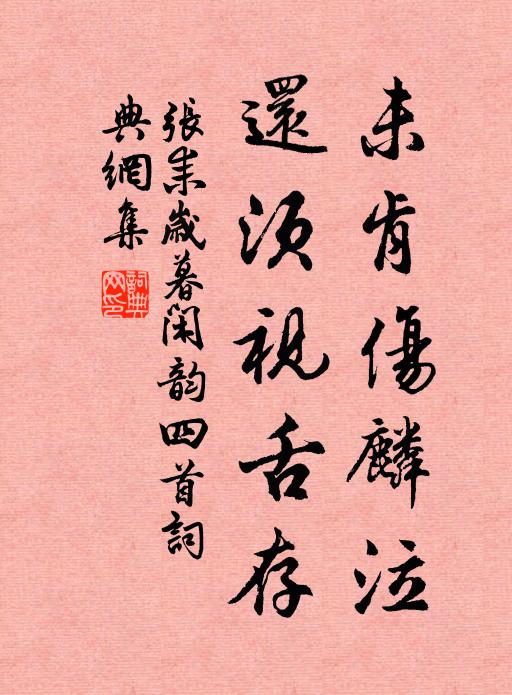 未肯傷麟泣
還須視舌存
張耒歲暮閑韵四首詞
典網集
詞典网印